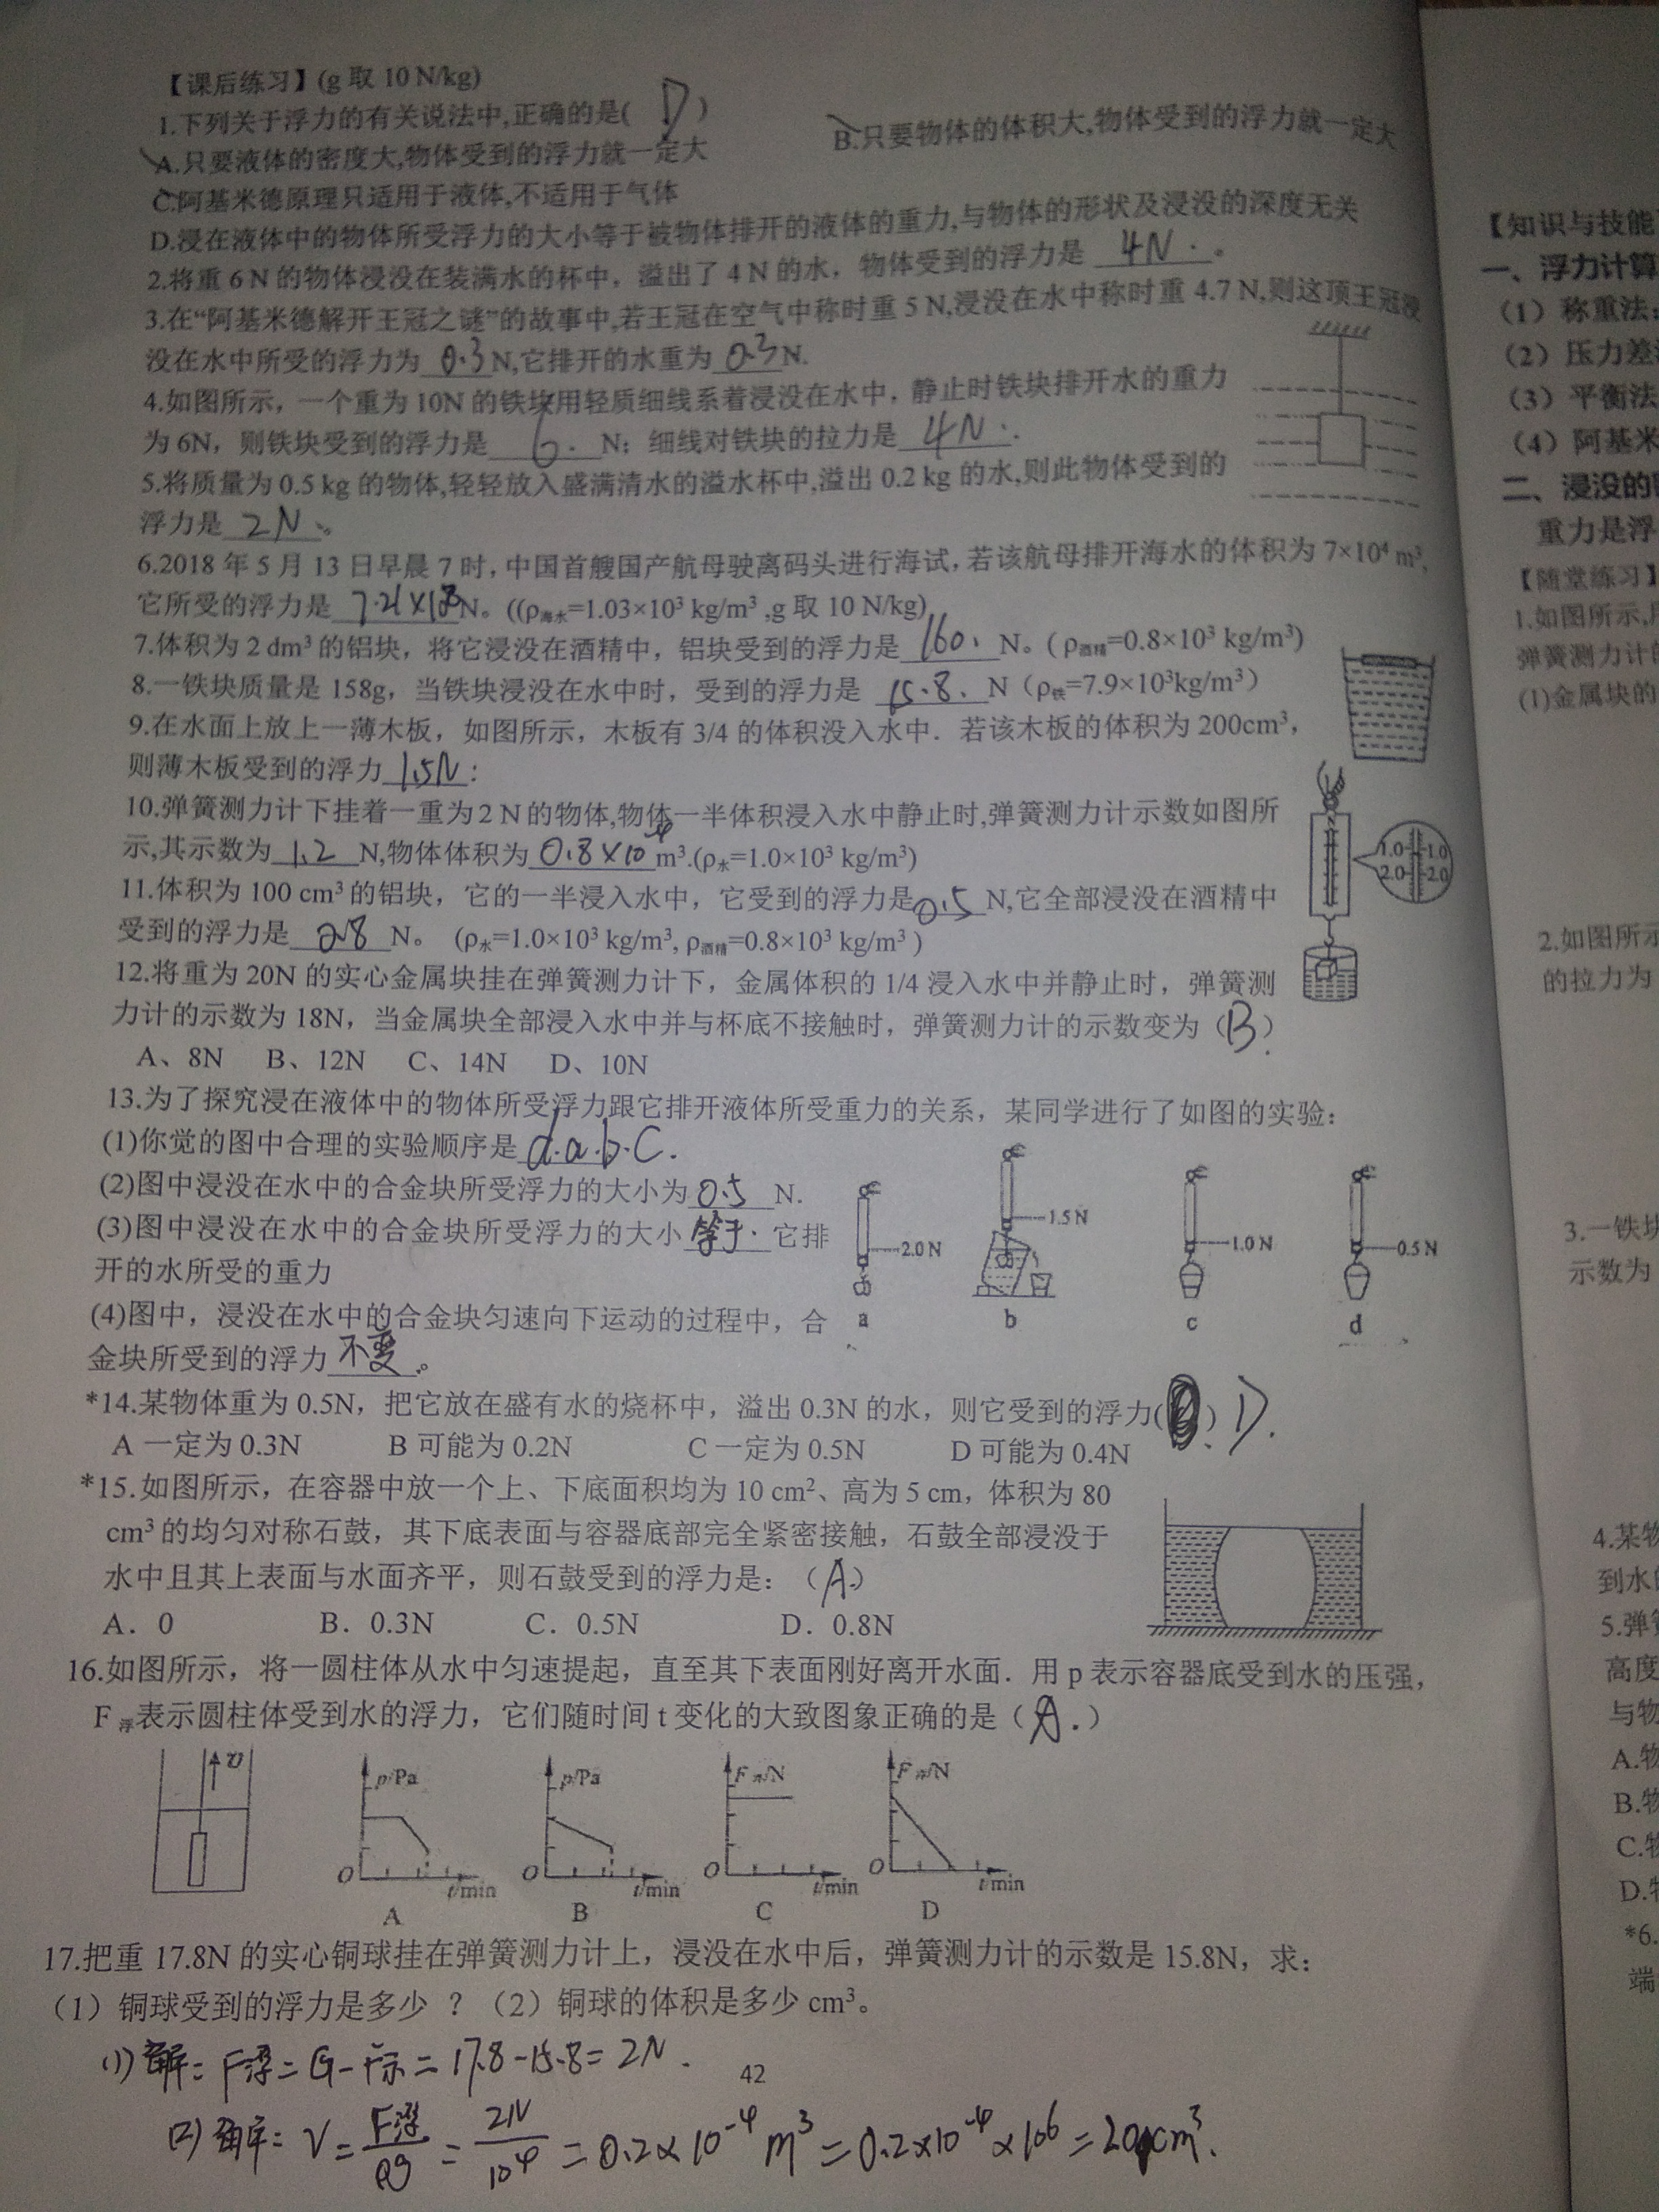 【课后练习】(g 取 10 N/kg)
1.下列关于浮力的有关说法中,正确的是( D )
A.只要液体的密度大,物体受到的浮力就一定大 B.只要物体的体积大,物体受到的浮力就一定大
C.阿基米德原理只适用于液体,不适用于气体
D.浸在液体中的物体所受浮力的大小等于被物体排开的液体的重力,与物体的形状及浸没的深度无关
2.将重 6 N 的物体浸没在装满水的杯中，溢出了 4 N 的水，物体受到的浮力是 4N 。
3.在“阿基米德解开王冠之谜”的故事中,若王冠在空气中称时重 5 N,浸没在水中称时重 4.7 N,则这顶王冠浸
没在水中所受的浮力为 0.3 N,它排开的水重为 0.3 N.
4.如图所示，一个重为 10N 的铁块用轻质细线系着浸没在水中，静止时铁块排开水的重力
为 6N，则铁块受到的浮力是 6. N；细线对铁块的拉力是 4N .
5.将质量为 0.5 kg 的物体,轻轻放入盛满清水的溢水杯中,溢出 0.2 kg 的水,则此物体受到的
浮力是 2N 。
6.2018 年 5 月 13 日早晨 7 时，中国首艘国产航母驶离码头进行海试，若该航母排开海水的体积为 7×10⁴ m³,
它所受的浮力是 7.21×10⁸ N。((ρ海水=1.03×10³ kg/m³ ,g 取 10 N/kg)
7.体积为 2 dm³ 的铝块，将它浸没在酒精中，铝块受到的浮力是 160. N。( ρ酒精=0.8×10³ kg/m³)
8.一铁块质量是 158g，当铁块浸没在水中时，受到的浮力是 15.8. N（ρ铁=7.9×10³kg/m³）
9.在水面上放上一薄木板，如图所示，木板有 3/4 的体积没入水中．若该木板的体积为 200cm³，
则薄木板受到的浮力 1.5N ：
10.弹簧测力计下挂着一重为2 N的物体,物体一半体积浸入水中静止时,弹簧测力计示数如图所
示,其示数为 1.2 N,物体体积为 0.8×10⁻⁴ m³.(ρ水=1.0×10³ kg/m³)
1.0 1.0
2.0 2.0
11.体积为 100 cm³ 的铝块，它的一半浸入水中，它受到的浮力是 0.5 N,它全部浸没在酒精中
受到的浮力是 0.8 N。 (ρ水=1.0×10³ kg/m³, ρ酒精=0.8×10³ kg/m³ )
12.将重为 20N 的实心金属块挂在弹簧测力计下，金属体积的 1/4 浸入水中并静止时，弹簧测
力计的示数为 18N，当金属块全部浸入水中并与杯底不接触时，弹簧测力计的示数变为（B.）
A、8N B、12N C、14N D、10N
13.为了探究浸在液体中的物体所受浮力跟它排开液体所受重力的关系，某同学进行了如图的实验：
(1)你觉的图中合理的实验顺序是 d.a.b.c.
(2)图中浸没在水中的合金块所受浮力的大小为 0.5 N.
(3)图中浸没在水中的合金块所受浮力的大小 等于. 它排
开的水所受的重力
(4)图中，浸没在水中的合金块匀速向下运动的过程中，合
金块所受到的浮力 不变 。
2.0 N 1.5 N 1.0 N 0.5 N
a b c d
*14.某物体重为 0.5N，把它放在盛有水的烧杯中，溢出 0.3N 的水，则它受到的浮力( ) D.
A 一定为 0.3N B 可能为 0.2N C 一定为 0.5N D 可能为 0.4N
*15.如图所示，在容器中放一个上、下底面积均为 10 cm²、高为 5 cm，体积为 80
cm³ 的均匀对称石鼓，其下底表面与容器底部完全紧密接触，石鼓全部浸没于
水中且其上表面与水面齐平，则石鼓受到的浮力是：（A.）
A．0 B．0.3N C．0.5N D．0.8N
16.如图所示，将一圆柱体从水中匀速提起，直至其下表面刚好离开水面．用 p 表示容器底受到水的压强，
F 浮表示圆柱体受到水的浮力，它们随时间 t 变化的大致图象正确的是（ A. ）
υ p/Pa p/Pa F浮/N F浮/N
O t/min O t/min O t/min O t/min
A B C D
17.把重 17.8N 的实心铜球挂在弹簧测力计上，浸没在水中后，弹簧测力计的示数是 15.8N，求：
（1）铜球受到的浮力是多少 ？（2）铜球的体积是多少 cm³。
(1)解: F浮=G-F示=17.8-15.8=2N.
42
(2)解: V=F浮/ρg=2N/10⁴=0.2×10⁻⁴m³=0.2×10⁻⁴×10⁶=20cm³.
【知识与技能
一、浮力计算
（1）称重法：
（2）压力差
（3）平衡法
（4）阿基米
二、浸没的
重力是浮
【随堂练习】
1.如图所示,
弹簧测力计的
(1)金属块的
2.如图所示
的拉力为
3.一铁块
示数为
4.某物
到水的
5.弹簧
高度
与物
A.物
B.物
C.物
D.物
*6.
端